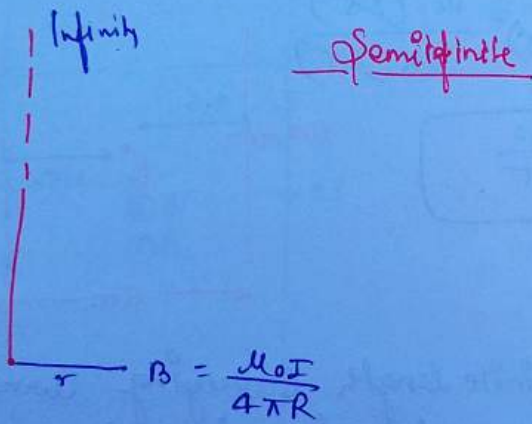 Infinity
Semiinfinite
r B = μ₀I / 4πR